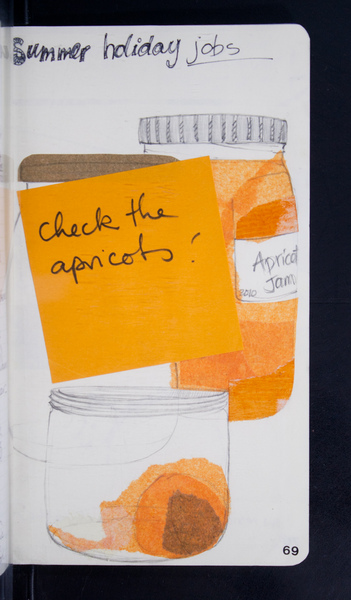 Summer holiday jobs
check the
apricots!
Apricot
Jam
2010
69